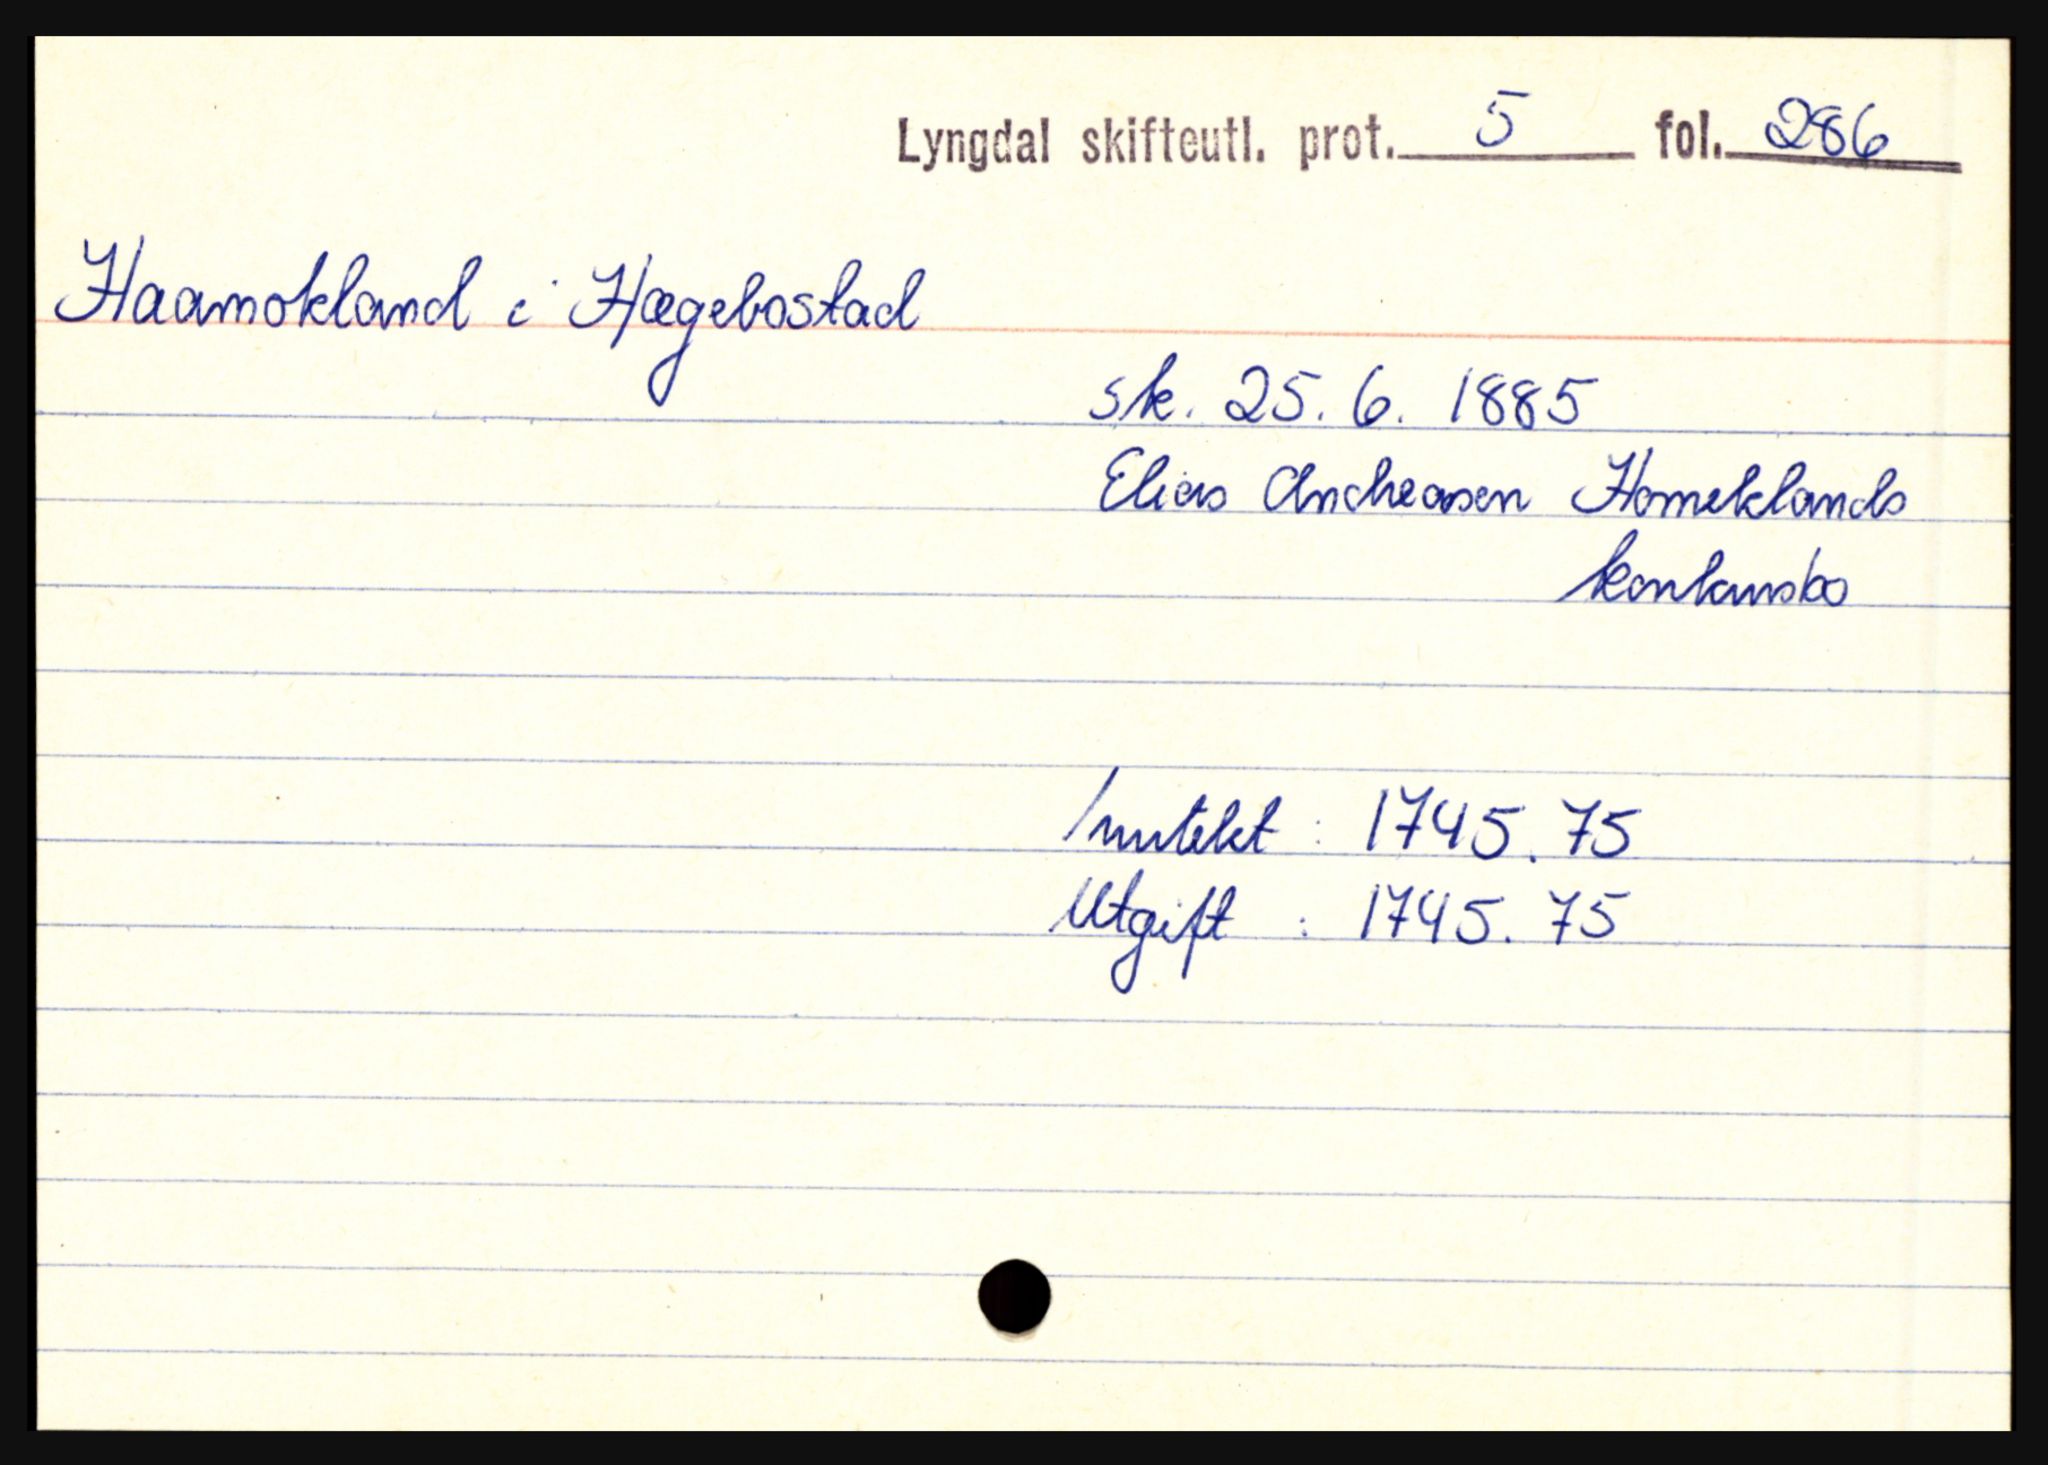 Lyngdal skifteutl. prot. 5 fol. 286
Haamokland i Hægebostad
sk. 25.6. 1885
Elias Andreasen Homeklands
konkursbo
Inntekt : 1745.75
Utgift : 1745.75